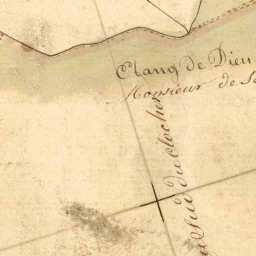 Etang de Dieu
Monsieur de
au Sud du clocher